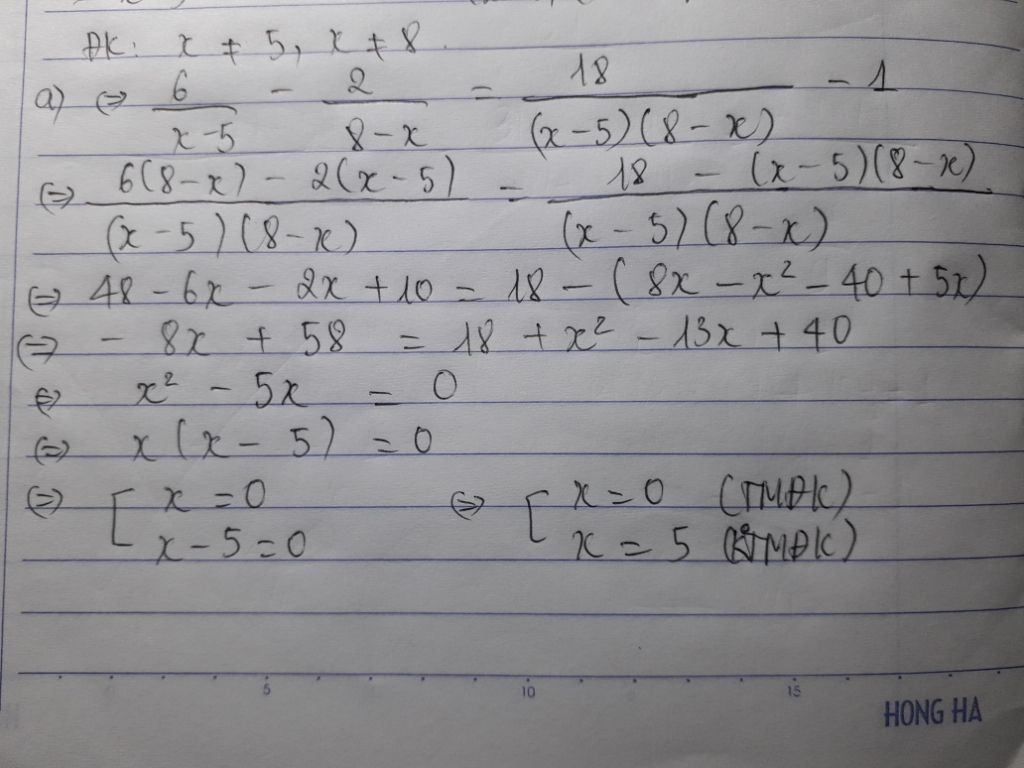 ĐK: x ≠ 5, x ≠ 8.
a) ⇔ 6/(x-5) - 2/(8-x) = 18/((x-5)(8-x)) - 1
⇔ (6(8-x) - 2(x-5))/((x-5)(8-x)) = (18 - (x-5)(8-x))/((x-5)(8-x))
⇔ 48 - 6x - 2x + 10 = 18 - (8x - x² - 40 + 5x)
⇔ - 8x + 58 = 18 + x² - 13x + 40
⇔ x² - 5x = 0
⇔ x(x - 5) = 0
⇔ [ x = 0 ⇔ [ x = 0 (TMĐK)
x - 5 = 0 x = 5 (KTMĐK)
5 10 15
HONG HA